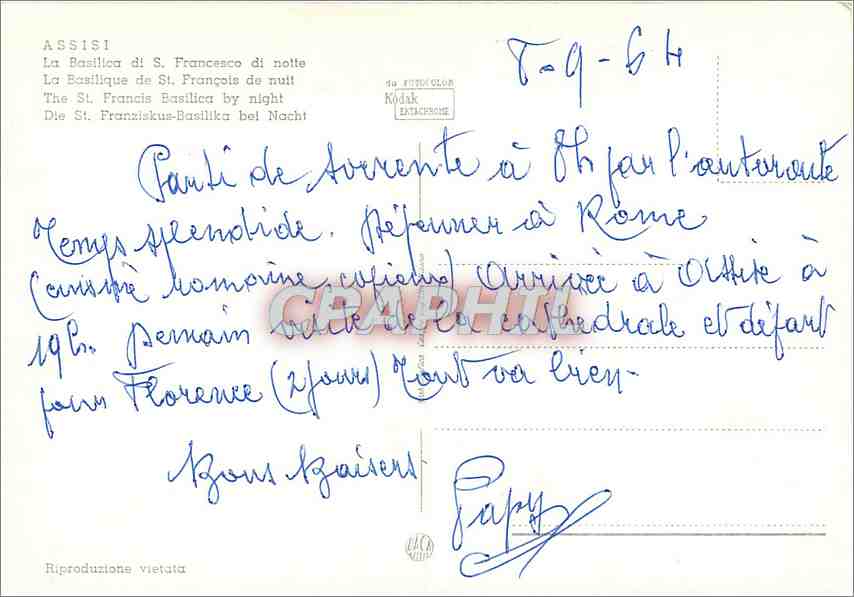 ASSISI
La Basilica di S. Francesco di notte
La Basilique de St. François de nuit
The St. Francis Basilica by night
Die St. Franziskus-Basilika bei Nacht
da FOTOCOLOR
Kodak
EKTACHROME
-9-64
Parti de Sorrente à 8h par l'autoroute
Temps splendide. Déjeuner à Rome
(cuisine romaine copieuse) Arrivée à Assise à
19h. Demain visite de la cathedrale et départ
pour Florence (2 jours) Tout va bien-
Bons Baisers
Papy
CPAPHIL
Riproduzione vietata